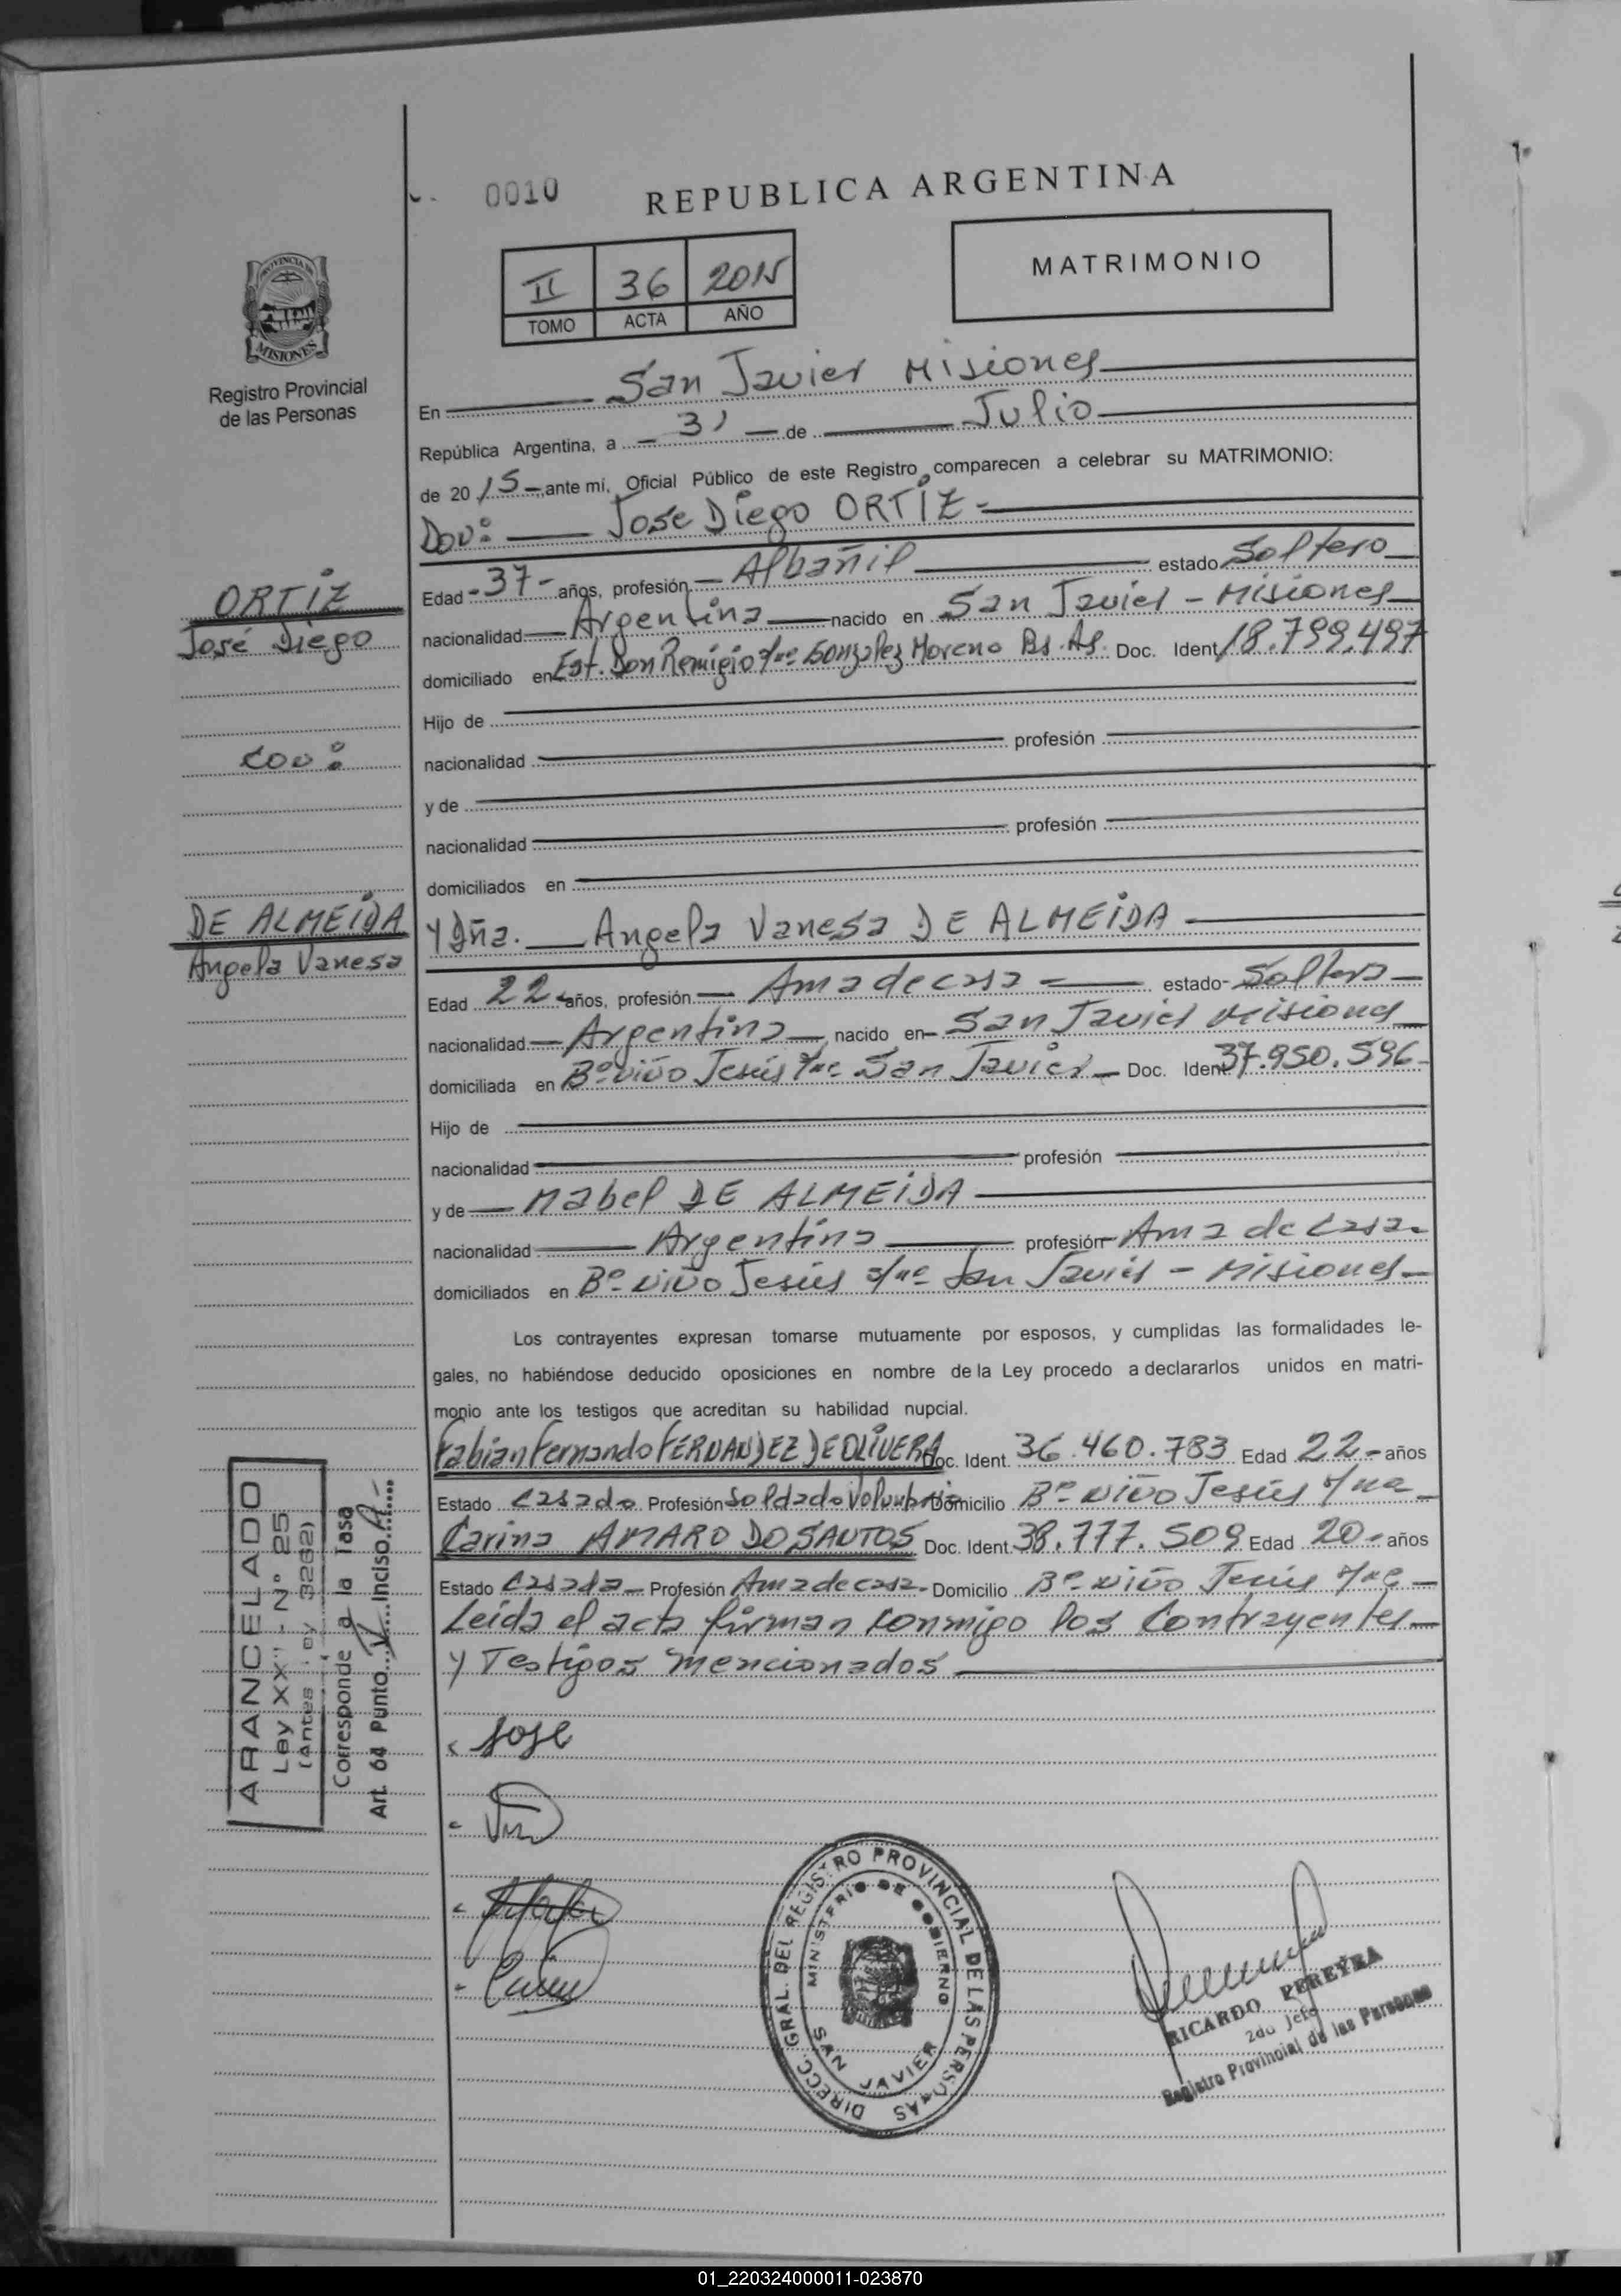 0010
REPUBLICA ARGENTINA
II 36 2015
TOMO ACTA AÑO
MATRIMONIO
PROVINCIA DE
MISIONES
Registro Provincial
de las Personas
En San Javier Misiones
República Argentina, a 31 de Julio
de 2015 ante mi, Oficial Público de este Registro comparecen a celebrar su MATRIMONIO:
Don: Jose Diego ORTIZ
ORTIZ
José Diego
Edad 37 años, profesión Albañil estado Soltero
nacionalidad Argentina nacido en San Javier - Misiones
domiciliado en Est. Don Remigio Gonzalez Moreno Bs. As. Doc. Ident 18.799.497
Hijo de
nacionalidad profesión
con:
y de
nacionalidad profesión
domiciliados en
DE ALMEIDA
Angela Vanesa
Y Dña. Angela Vanesa DE ALMEIDA
Edad 22 años, profesión Ama de casa estado Soltera
nacionalidad Argentina nacido en San Javier Misiones
domiciliada en Bº Niño Jesús San Javier Doc. Ident 37.950.596
Hijo de
nacionalidad profesión
y de Mabel DE ALMEIDA
nacionalidad Argentina profesión Ama de casa
domiciliados en Bº Niño Jesús s/nº San Javier - Misiones
Los contrayentes expresan tomarse mutuamente por esposos, y cumplidas las formalidades le-
gales, no habiéndose deducido oposiciones en nombre de la Ley procedo a declararlos unidos en matri-
monio ante los testigos que acreditan su habilidad nupcial.
Fabian Fernando FERNANDEZ DE OLIVERA Doc. Ident. 36.460.783 Edad 22 años
Estado Casado Profesión Soldado Voluntario Domicilio Bº Niño Jesús s/nº
Carina AMARO DOSANTOS Doc. Ident. 38.777.509 Edad 20 años
Estado Casada Profesión Ama de casa Domicilio Bº Niño Jesús s/nº
Leida el acta firman conmigo los Contrayentes
y Testigos mencionados
ARANCELADO
Ley XX - N° 25
(Antes Ley 3262)
Corresponde a la Tasa
Art. 64 Punto Inciso A
Jose
DIRECC. GRAL. DEL REGISTRO PROVINCIAL DE LAS PERSONAS
MINISTERIO DE GOBIERNO
SAN JAVIER
RICARDO PEREYRA
2do Jefe
Registro Provincial de las Personas
01_220324000011-023870